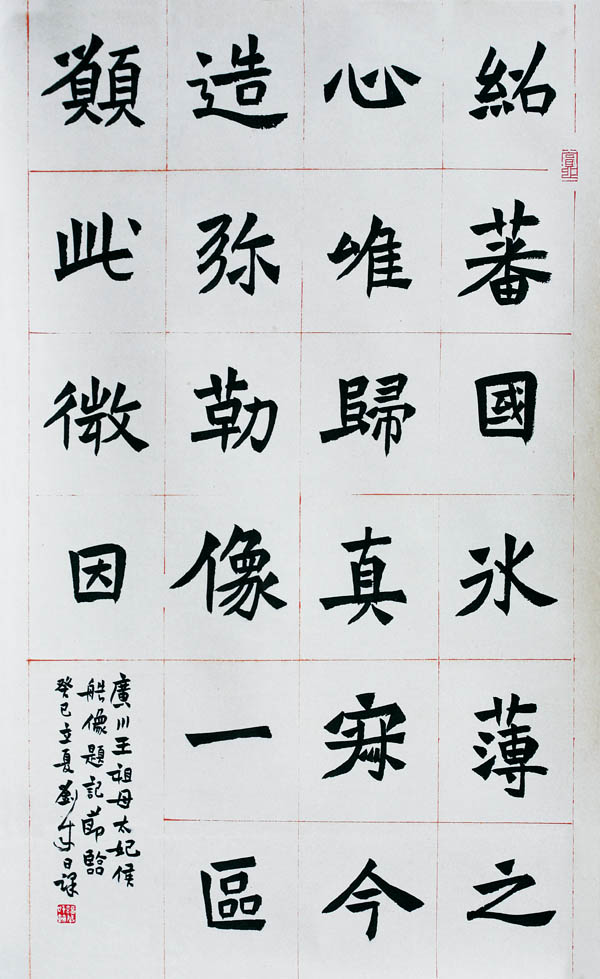 紹蕃國冰薄之
心唯歸真寂今
造弥勒像一區
願此微因
廣川王祖母太妃侯
艁像題記節臨
癸巳立夏劉